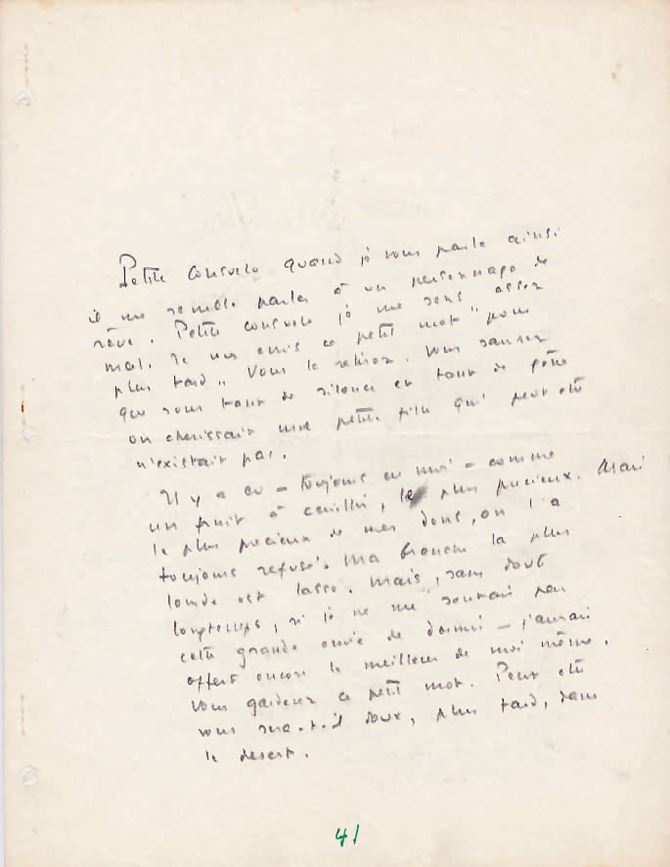 Petite Consuelo quand je vous parle ainsi
il me semble parler à un personnage de
rêve. Petite consuelo je me sens assez
mal. Je vous écris ce petit mot "pour
plus tard". Vous le relirez. Vous saurez
que sous tant de silence et tant de gêne
on cherissait une petite fille qui peut etre
n'existait pas.
Il y a eu - toujours en moi - comme
un fruit à cueillir, le plus precieux. Mais
le plus precieux de mes dons, on l'a
toujours refusé. Ma branche la plus
lourde est lasse. Mais, sans doute
longtemps, si je ne me sentais pas
cette grande envie de dormir - j'aurais
offert encore le meilleur de moi même.
Vous garderez ce petit mot. Peut etre
vous sera-t-il doux, plus tard, dans
le desert.
41